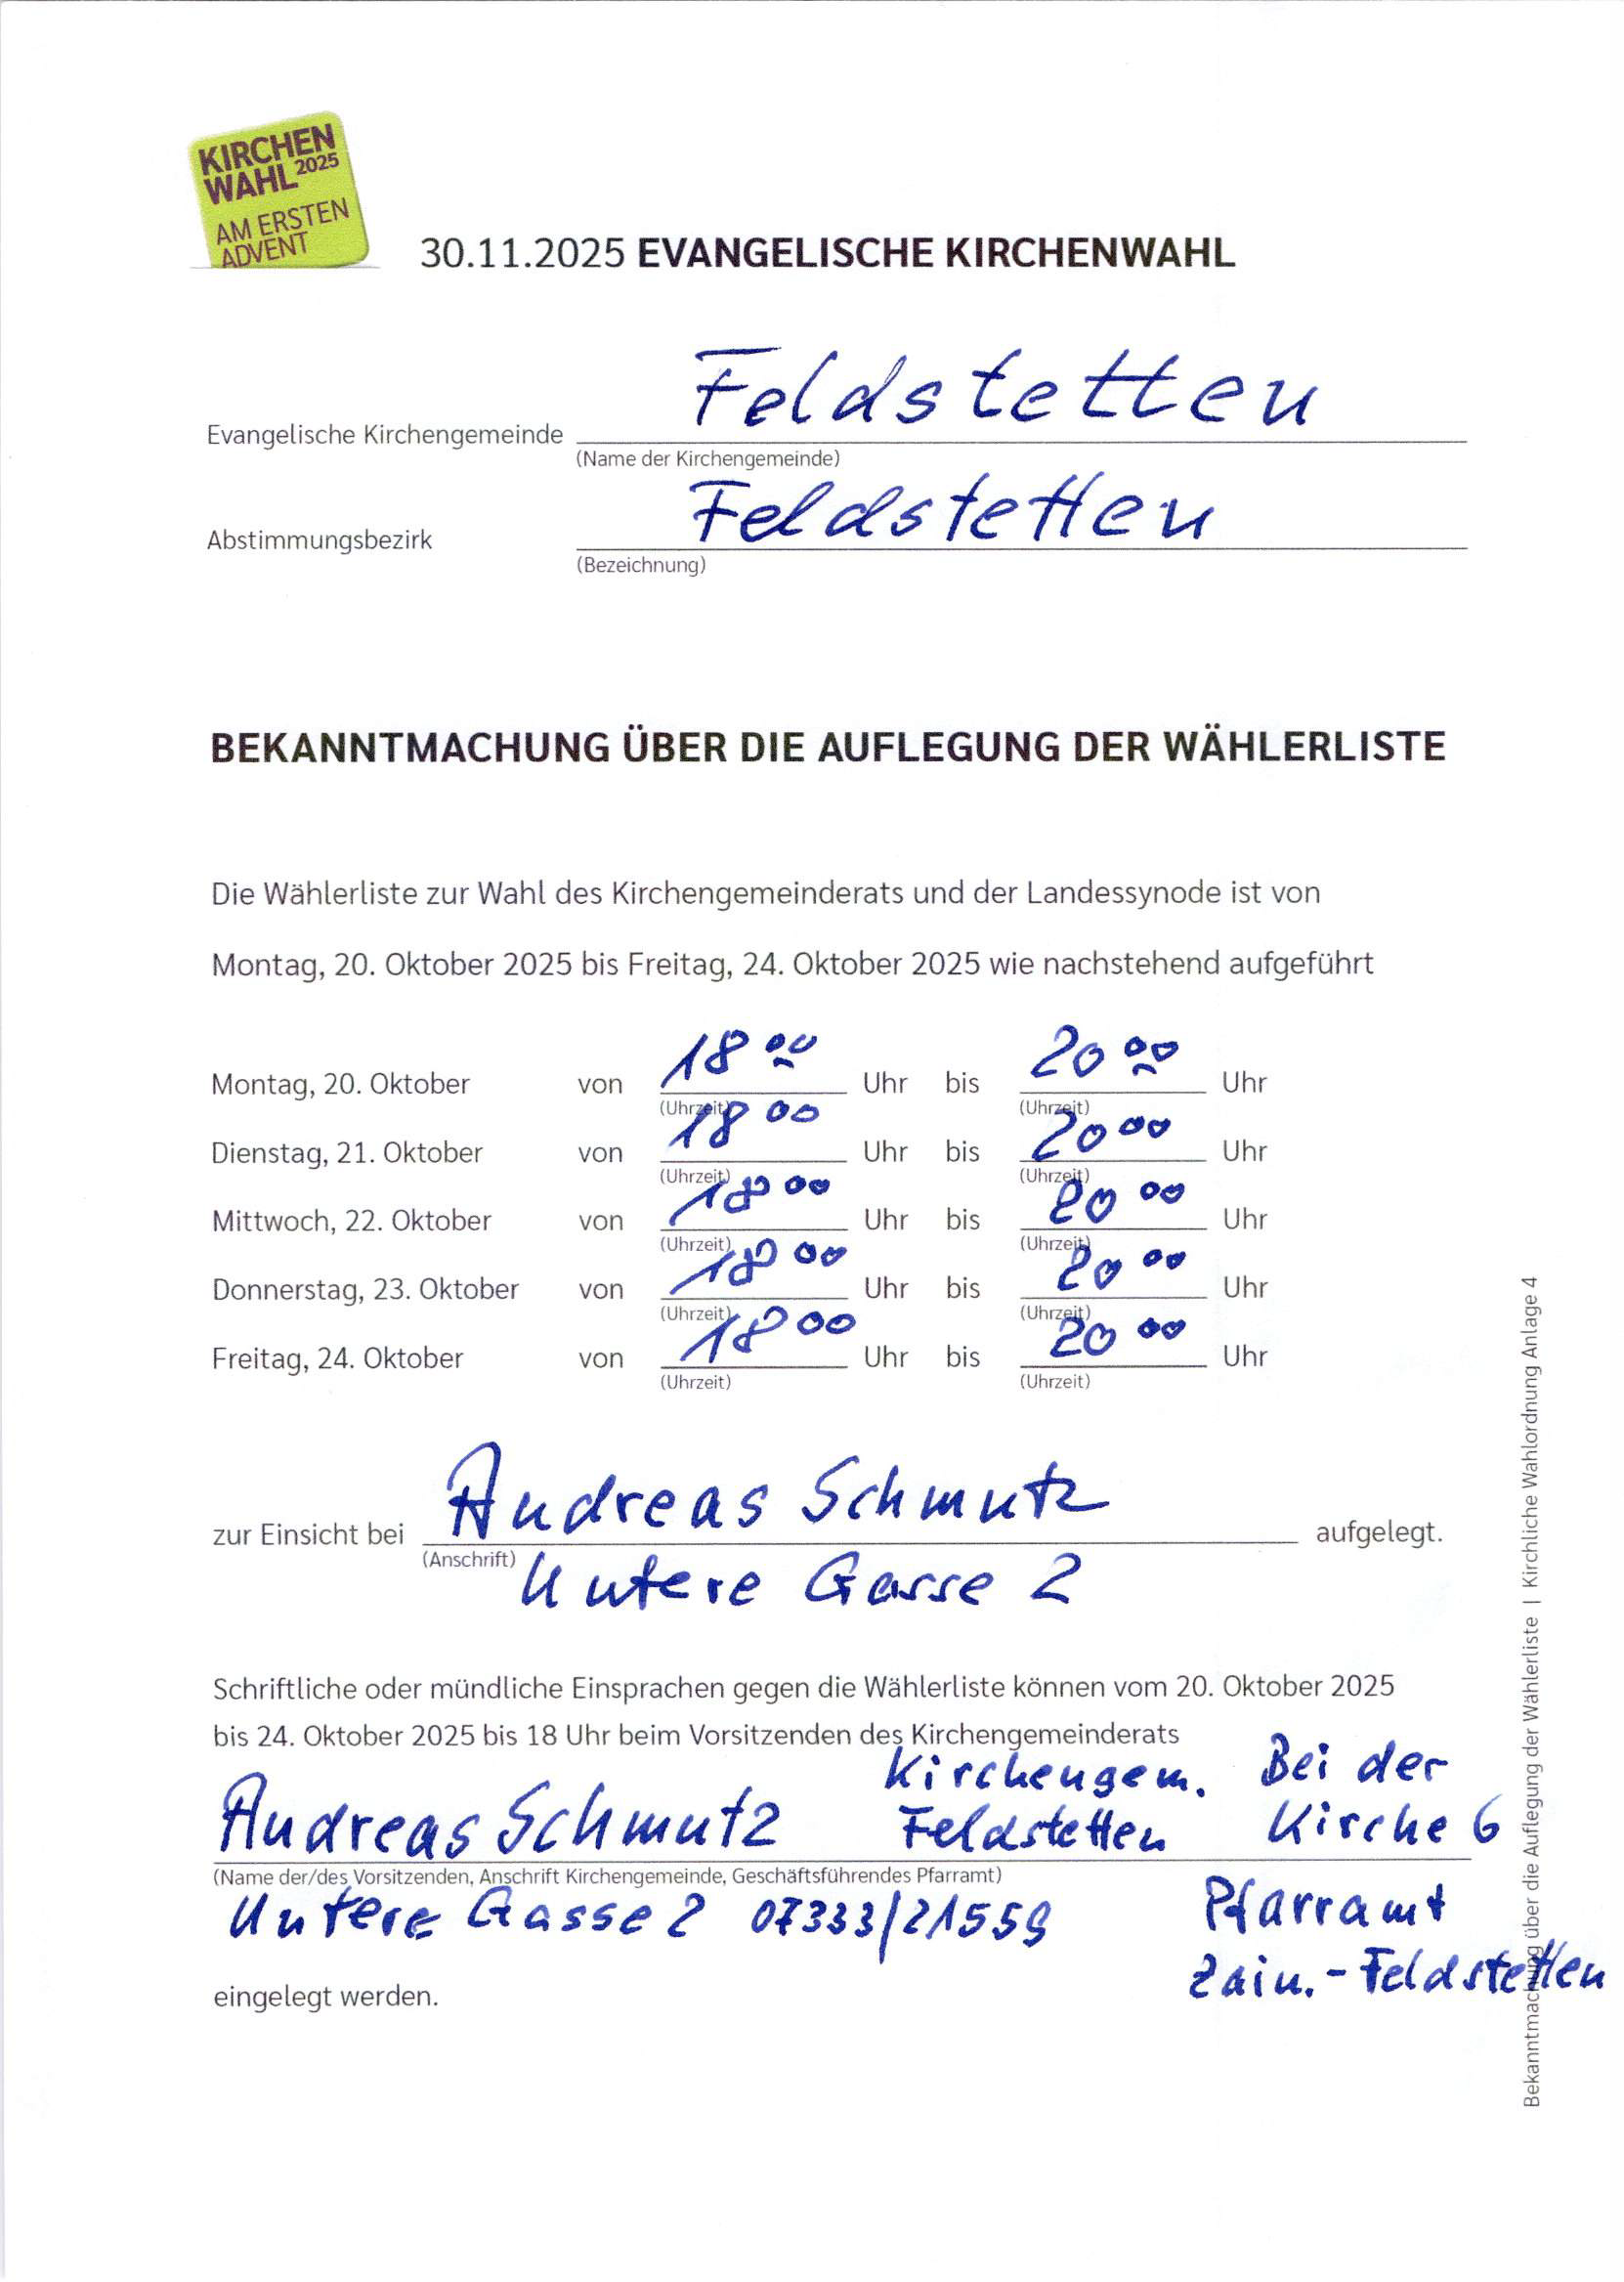 KIRCHEN
WAHL 2025
AM ERSTEN
ADVENT
30.11.2025 EVANGELISCHE KIRCHENWAHL
Evangelische Kirchengemeinde Feldstetten
(Name der Kirchengemeinde)
Abstimmungsbezirk Feldstetten
(Bezeichnung)
BEKANNTMACHUNG ÜBER DIE AUFLEGUNG DER WÄHLERLISTE
Die Wählerliste zur Wahl des Kirchengemeinderats und der Landessynode ist von
Montag, 20. Oktober 2025 bis Freitag, 24. Oktober 2025 wie nachstehend aufgeführt
Montag, 20. Oktober von 18 00 Uhr bis 20 00 Uhr
(Uhrzeit) (Uhrzeit)
Dienstag, 21. Oktober von 18 00 Uhr bis 20 00 Uhr
(Uhrzeit) (Uhrzeit)
Mittwoch, 22. Oktober von 18 00 Uhr bis 20 00 Uhr
(Uhrzeit) (Uhrzeit)
Donnerstag, 23. Oktober von 18 00 Uhr bis 20 00 Uhr
(Uhrzeit) (Uhrzeit)
Freitag, 24. Oktober von 18 00 Uhr bis 20 00 Uhr
(Uhrzeit) (Uhrzeit)
zur Einsicht bei Andreas Schmutz aufgelegt.
(Anschrift) Untere Gasse 2
Schriftliche oder mündliche Einsprachen gegen die Wählerliste können vom 20. Oktober 2025
bis 24. Oktober 2025 bis 18 Uhr beim Vorsitzenden des Kirchengemeinderats
Kirchengem. Bei der
Andreas Schmutz Feldstetten Kirche 6
(Name der/des Vorsitzenden, Anschrift Kirchengemeinde, Geschäftsführendes Pfarramt)
Untere Gasse 2 07333/21559 Pfarramt
Zain.-Feldstetten
eingelegt werden.
Bekanntmachung über die Auflegung der Wählerliste | Kirchliche Wahlordnung Anlage 4